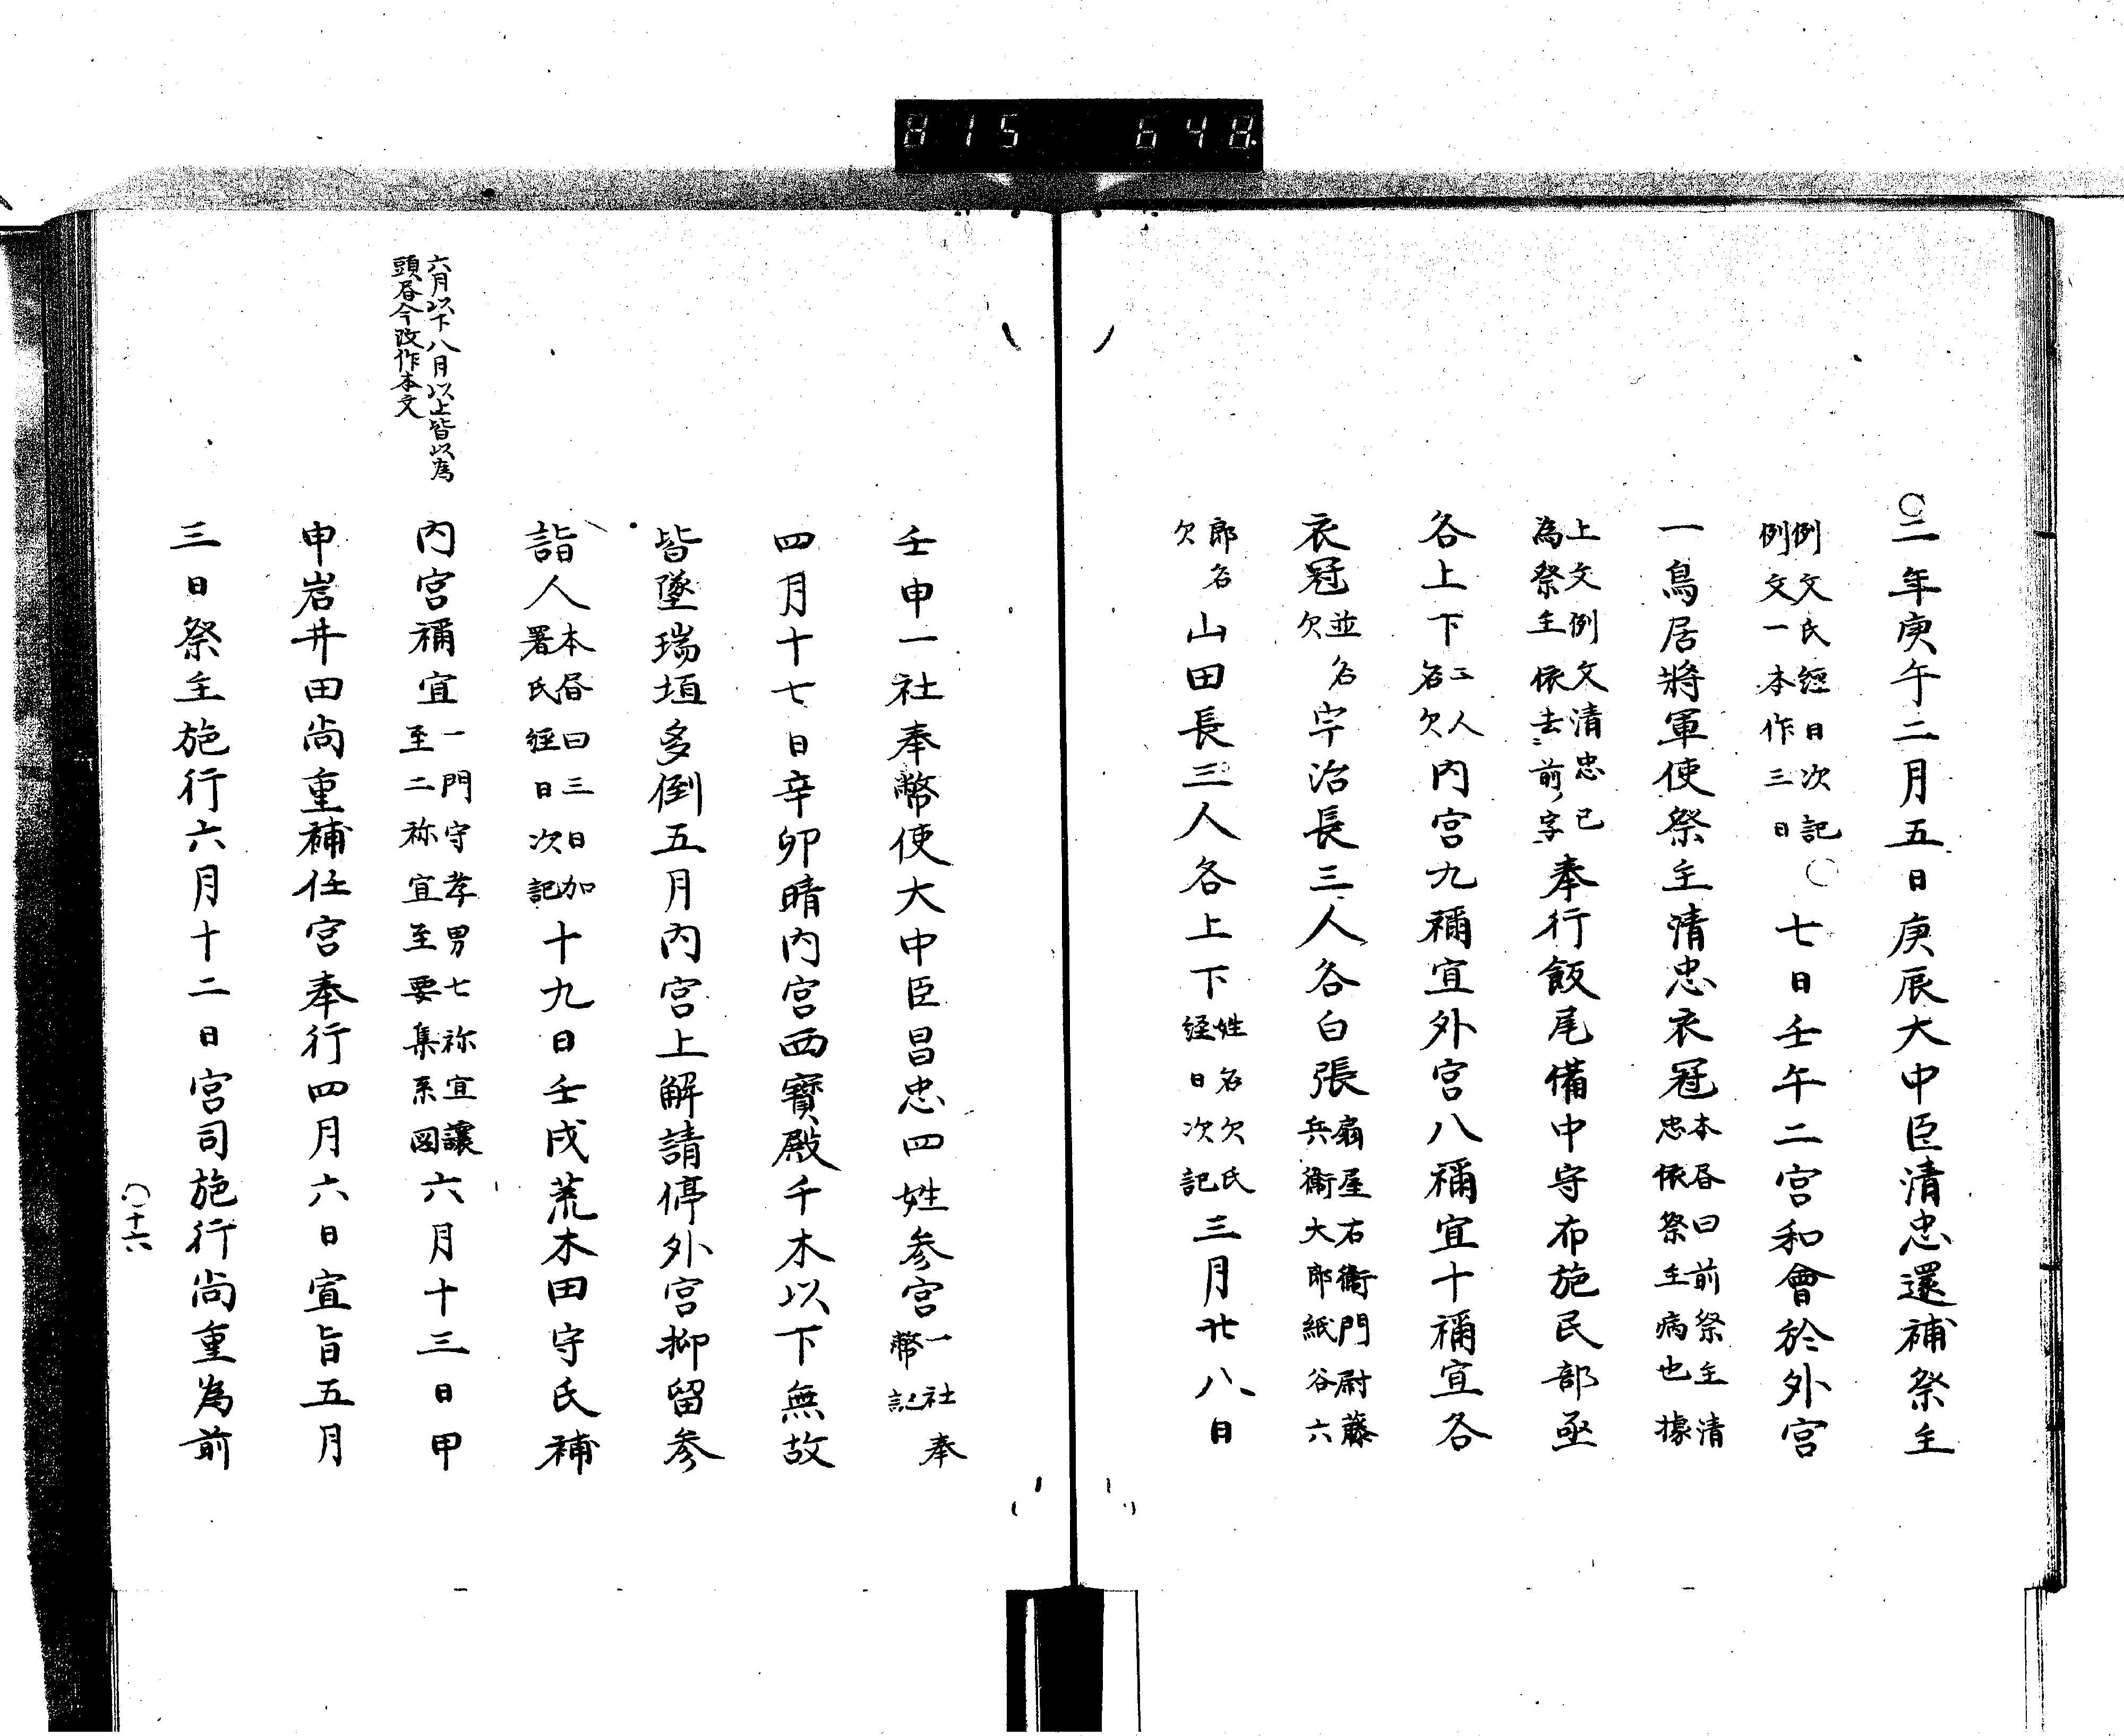 815 648
〇二年庚午二月五日庚辰大中臣清忠還補祭主
例文氏經日次記
例文一本作三日
〇七日壬午二宮和會於外宮
一鳥居將軍使祭主清忠衣冠
本昏曰前祭主清
忠依祭主病也據
上文例文清忠已
為祭主依去前字
奉行飯尾備中守布施民部亟
各上下
二人
名欠
內宮九禰宜外宮八禰宜十禰宜各
衣冠
並名
欠
宇治長三人各白張
扇屋右衛門尉藤
兵衛大郎紙谷六
郎名
欠
山田長三人各上下
姓名欠氏
経日次記
三月廿八日
壬申一社奉幣使大中臣昌忠四姓参宮
一社奉
幣記
四月十七日辛卯晴內宮西寶殿千木以下無故
皆墜瑞垣多倒五月內宮上解請停外宮抑留参
詣人
本昏曰三日加
署氏経日次記
十九日壬戌荒木田守氏補
內宮禰宜
一門守孝男七祢宜讓
至二祢宜至要集系図
六月十三日甲
六月以下八月以上皆以為
頭昏今改作本文
申岩井田尚重補任宮奉行四月六日宣旨五月
三日祭主施行六月十二日宮司施行尚重為前
〇十六